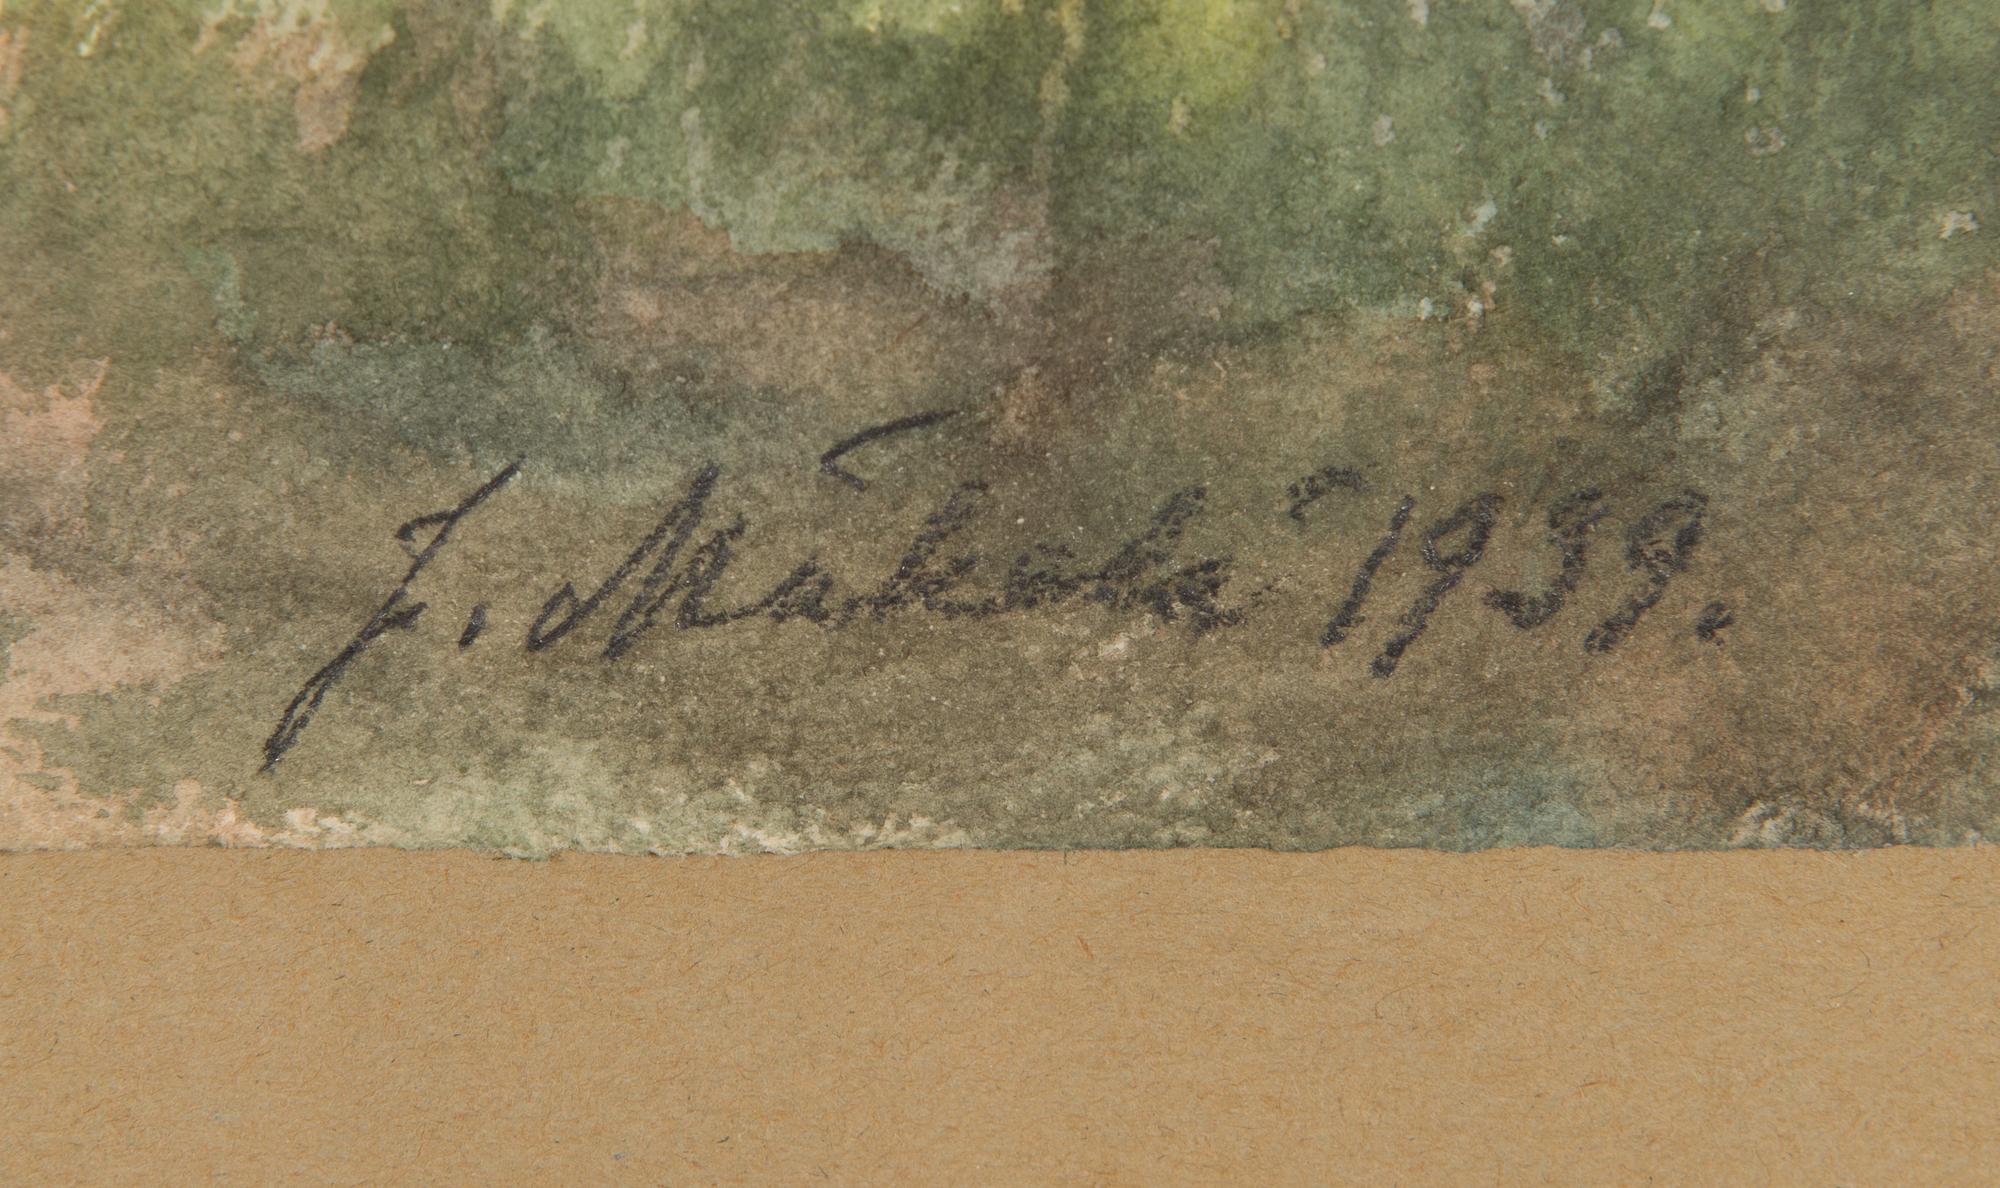 J. Makola 1939.